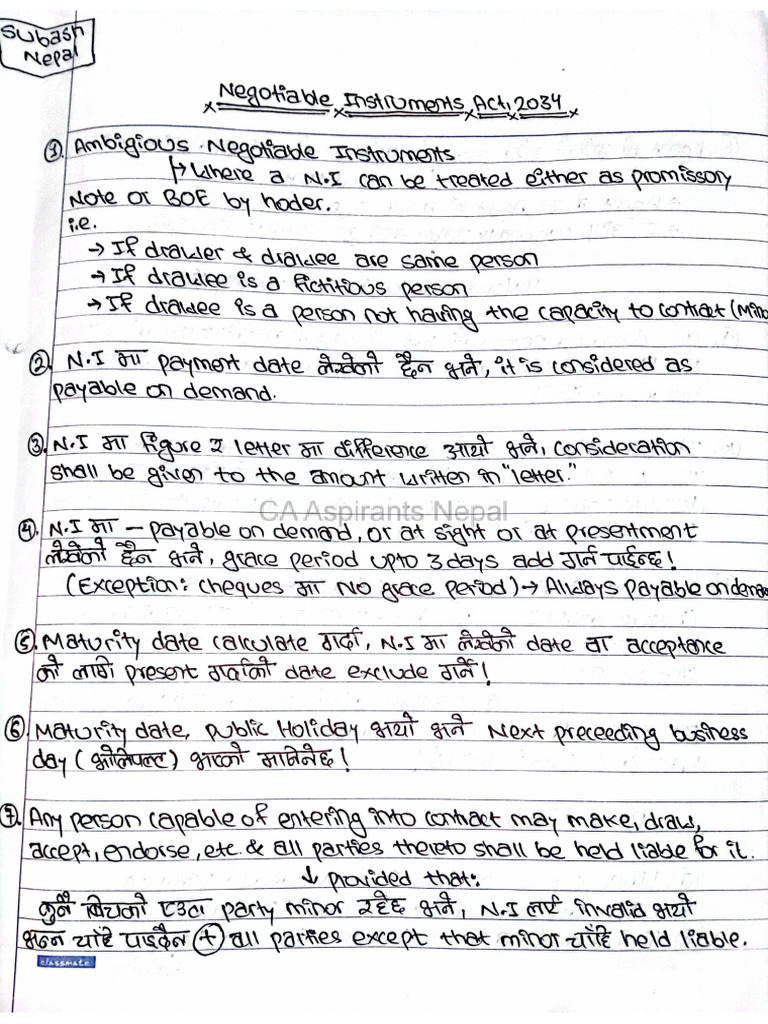 Subash
Nepal
Negotiable Instruments Act, 2034
①. Ambigious Negotiable Instruments
↳ Where a N.I can be treated either as promissory
Note or BOE by hoder.
i.e.
→ If drawer & drawee are same person
→ If drawee is a fictitious person
→ If drawee is a person not having the capacity to contract (Mino
②. N.I मा payment date लेखेको छैन भने, it is considered as
payable on demand.
③. N.I मा figure र letter मा difference आयो भने, consideration
shall be given to the amount written in "letter."
CA Aspirants Nepal
④. N.I मा – payable on demand, or at sight or at presentment
लेखेको छैन भने, grace period upto 3 days add गर्न पाईन्छ!
(Exception: cheques मा No grace period) → Always payable on dema
⑤. Maturity date calculate गर्दा, N.I मा लेखेको date वा acceptance
को लागि present गर्दाको date exclude गर्ने!
⑥. Maturity date, public Holiday भयो भने Next preceeding business
day (भोलिपल्ट) भएको मानिनेछ!
⑦. Any person capable of entering into contract may make, draw,
accept, endorse, etc. & all parties thereto shall be held liable for it.
↓ provided that:
कुनै बिचको एउटा party minor रहेछ भने, N.I लाई invalid भयो
भन्न चाँहि पाइदैन ⊕ all parties except that minor चाँहि held liable.
classmate